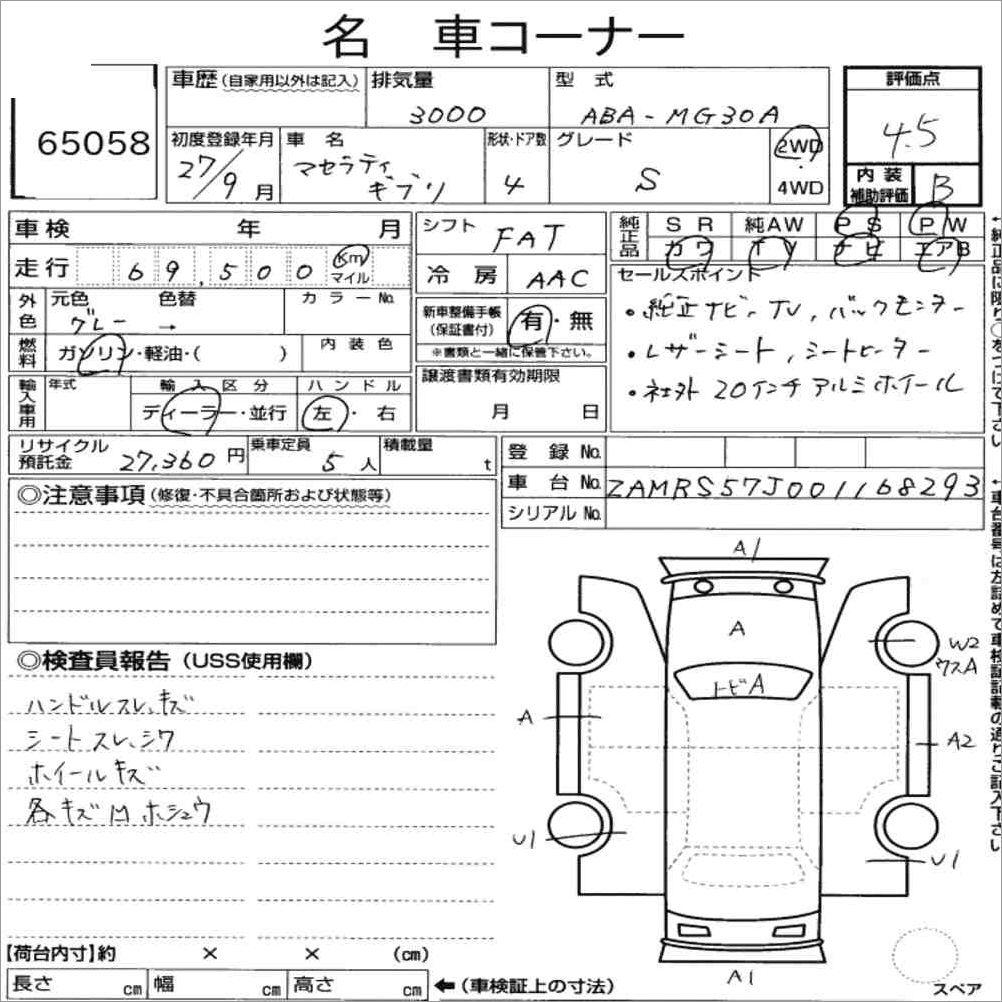 名 車コーナー
65058
車歴(自家用以外は記入) 排気量 3000 型式 ABA-MG30A
評価点 4.5
初度登録年月 27/9月 車名 マセラティ ギブリ 形状・ドア数 4 グレード S 2WD 4WD
内装補助評価 B
車検 年 月
走行 69,500 Km マイル
シフト FAT
冷房 AAC
純正品 SR 純AW PS PW
カワ TV ナビ エアB
外色 元色 グレー 色替 → カラーNo.
燃料 ガソリン・軽油・( ) 内装色
新車整備手帳(保証書付) 有・無
※書類と一緒に保管下さい。
セールスポイント
・純正ナビ、TV、バックモニター
・レザーシート、シートヒーター
・社外20インチアルミホイール
輸入車用 年式 輸入区分 ディーラー・並行 ハンドル 左・右
譲渡書類有効期限 月 日
リサイクル預託金 27,360円 乗車定員 5人 積載量 t
登録No.
車台No. ZAMRS57J001168293
シリアルNo.
◎注意事項(修復・不具合箇所および状態等)
◎検査員報告(USS使用欄)
ハンドルスレ、キズ
シートスレ、シワ
ホイールキズ
各キズMホシュウ
A1
A
トビA
W2
ワスA
A
A2
U1
U1
A1
スペア
【荷台内寸】約 × × (cm)
長さ cm 幅 cm 高さ cm ←(車検証上の寸法)